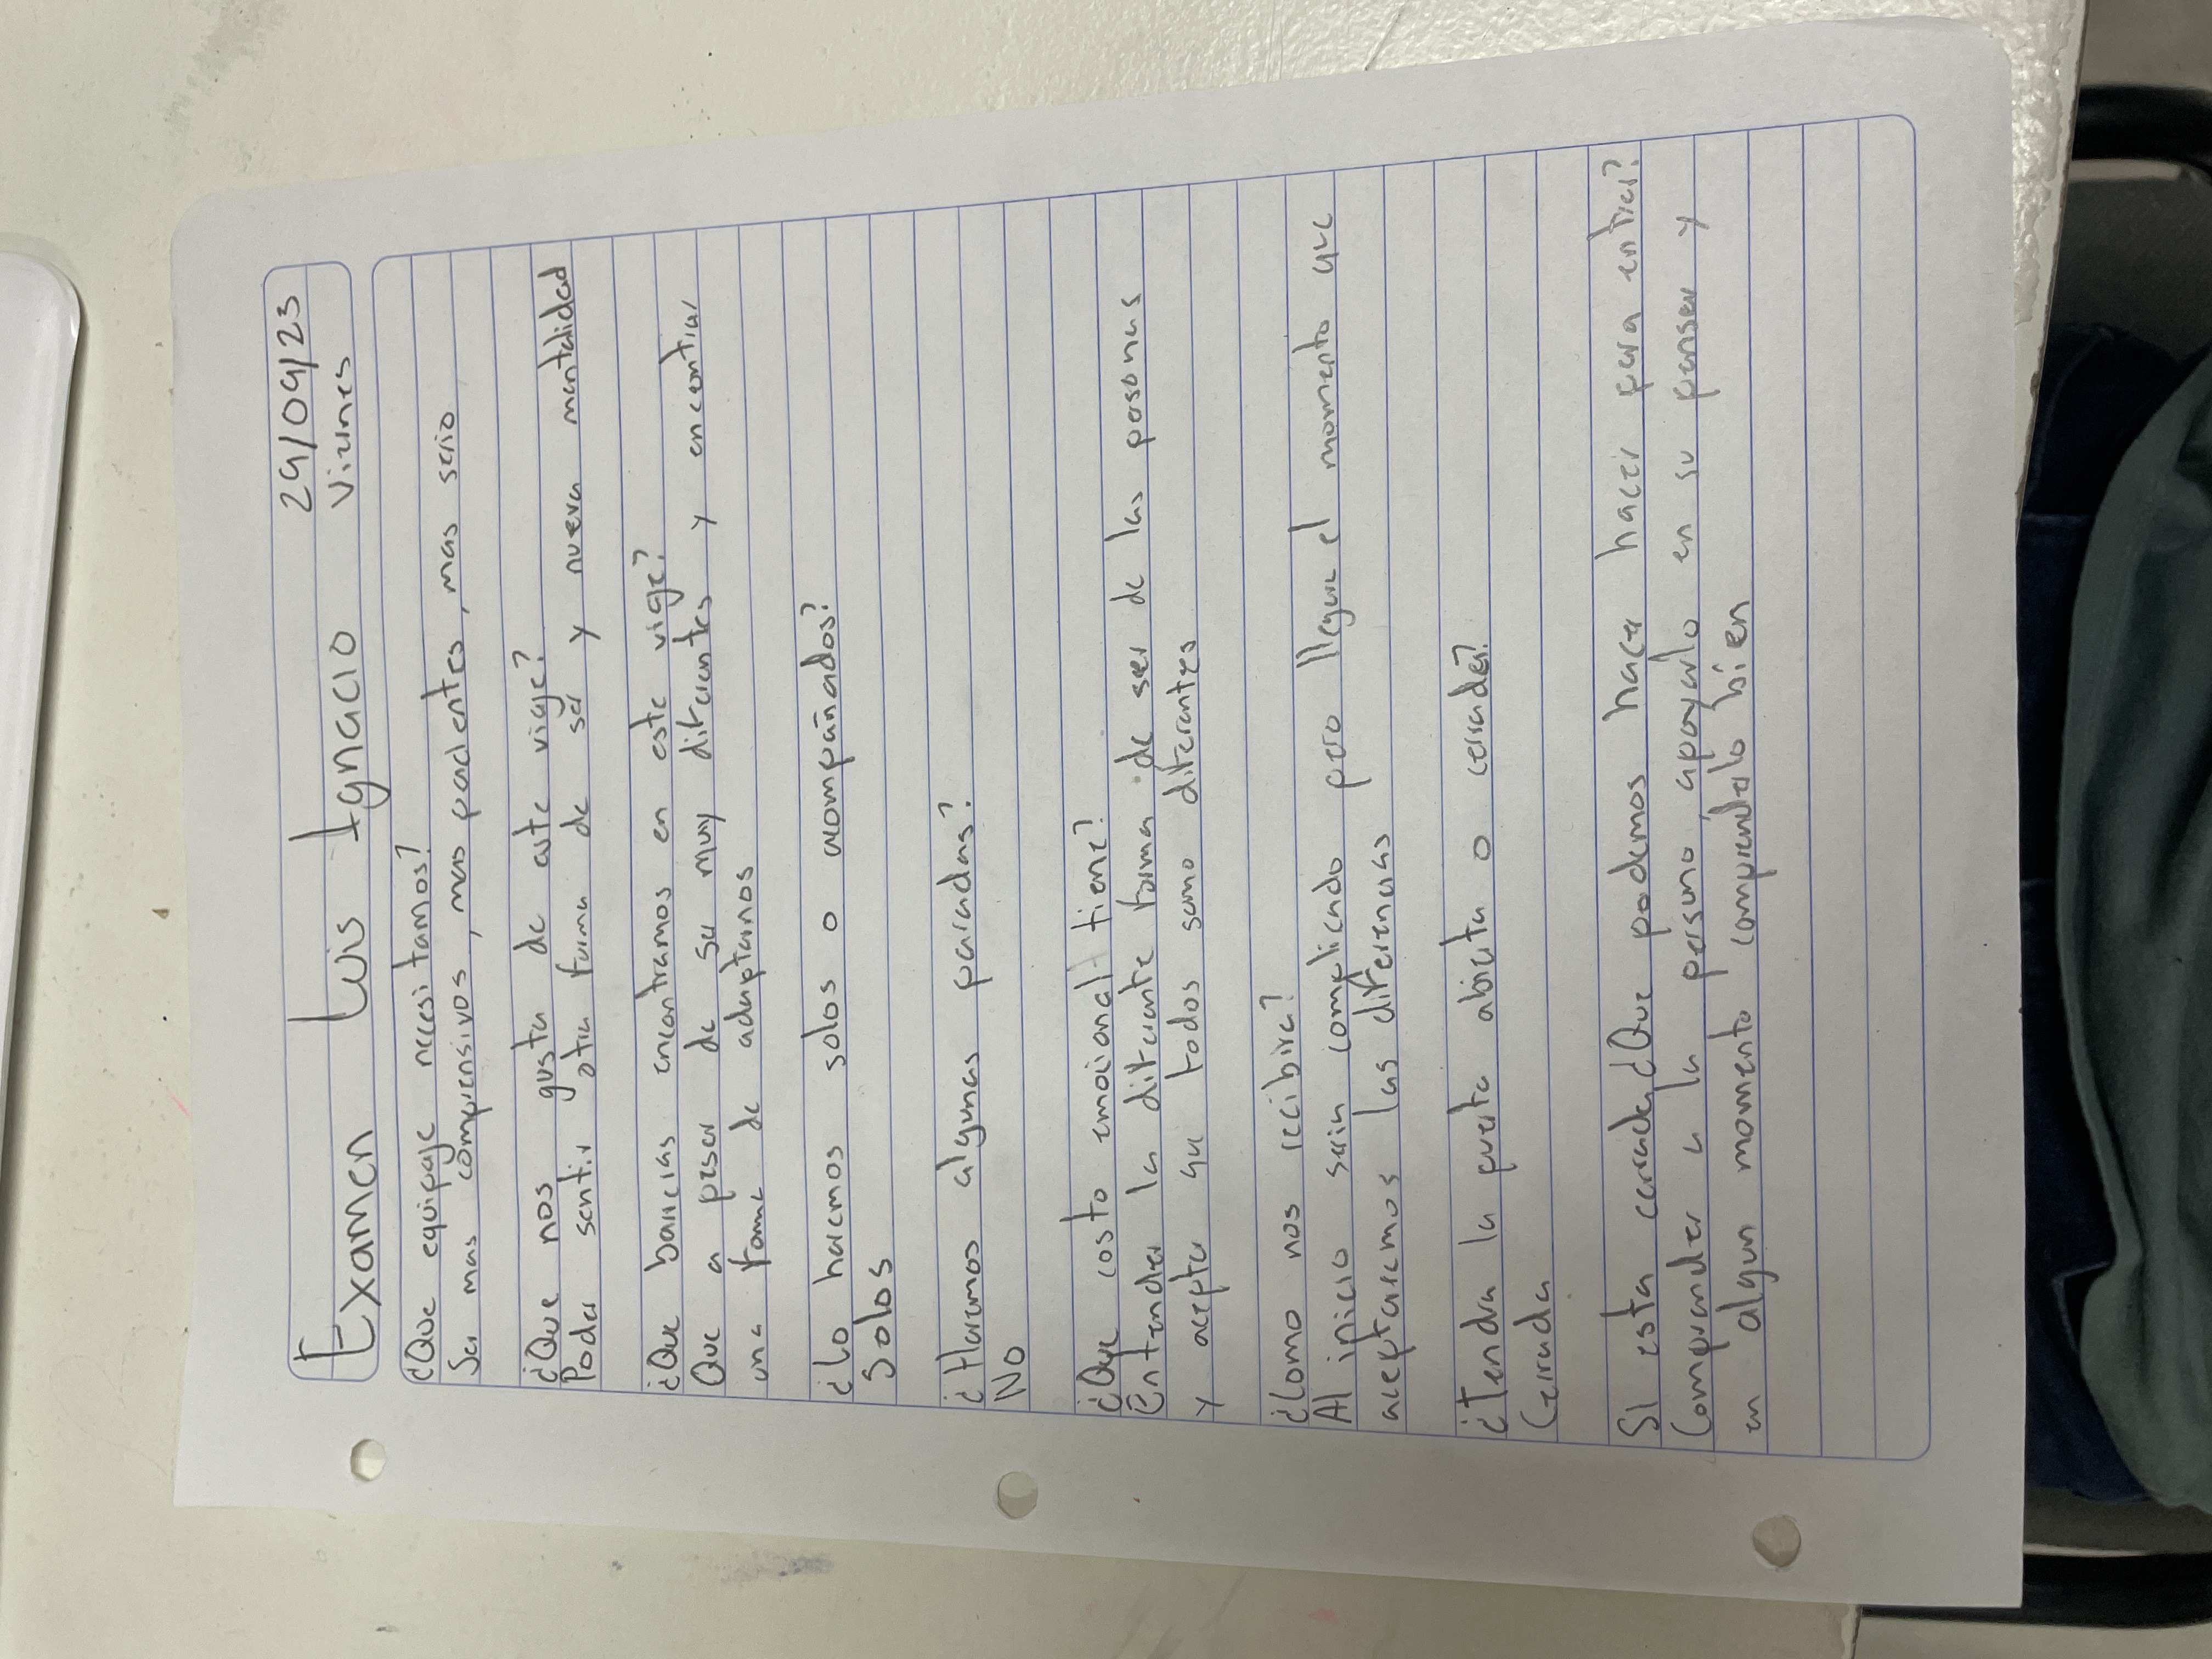 Examen Luis Ignacio 29/09/23
Viernes
¿Que equipaje necesitamos?
Ser mas comprensivos, mas pacientes, mas serio
¿Que nos gusta de este viaje?
Poder sentir otra forma de ser y nueva mentalidad
¿Que barreras encontramos en este viaje?
Que a pesar de ser muy diferentes y encontrar
una forma de adaptarnos
¿Lo haremos solos o acompañados?
Solos
¿Haremos algunas paradas?
No
¿Que costo emocional tiene?
Entender la diferente forma de ser de las personas
y aceptar que todos somo diferentes
¿Como nos recibira?
Al inicio seria complicado pero llegara el momento que
aceptaremos las diferencias
¿Tendra la puerta abierta o cerrada?
Cerrada
SI esta cerrada¿Que podemos hacer hacer para entrar?
Comprender a la persona, apoyarlo en su pensar y
en algun momento comprenderlo bien